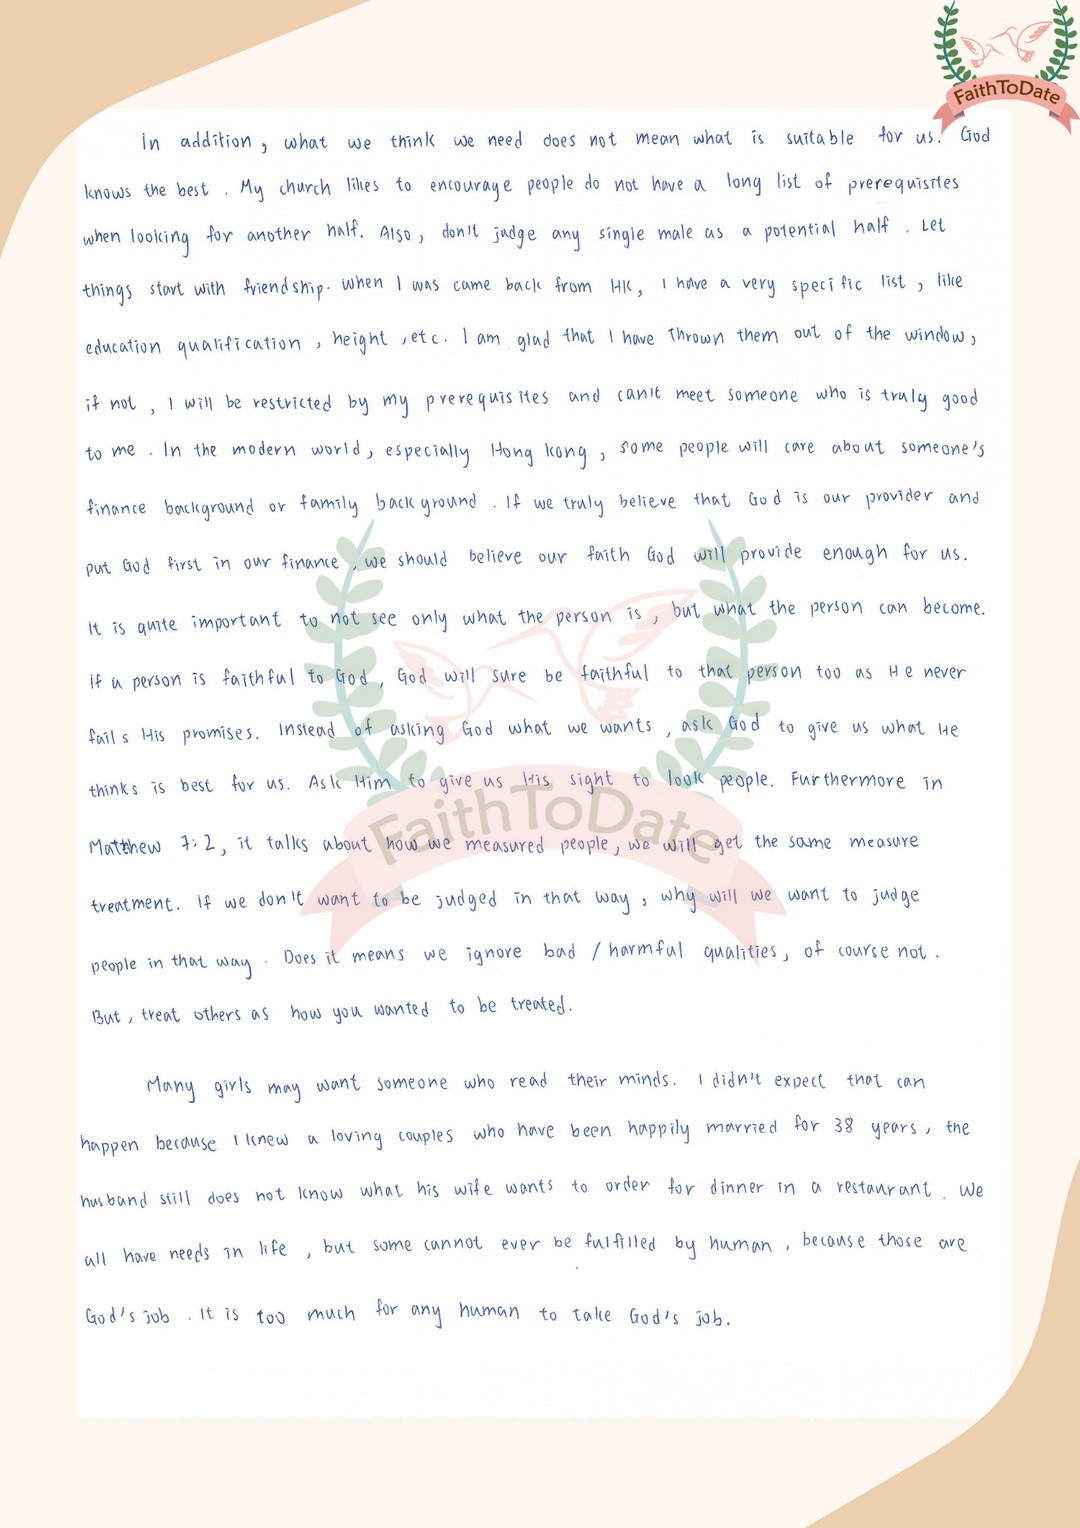 FaithToDate
In addition, what we think we need does not mean what is suitable for us. God
knows the best. My church likes to encourage people do not have a long list of prerequisites
when looking for another half. Also, don't judge any single male as a potential half. Let
things start with friendship. When I was came back from HK, I have a very specific list, like
education qualification, height, etc. I am glad that I have thrown them out of the window,
if not, I will be restricted by my prerequisites and can't meet someone who is truly good
to me. In the modern world, especially Hong Kong, some people will care about someone's
finance background or family background. If we truly believe that God is our provider and
put God first in our finance, we should believe our faith God will provide enough for us.
It is quite important to not see only what the person is, but what the person can become.
If a person is faithful to God, God will sure be faithful to that person too as He never
fails His promises. Instead of asking God what we wants, ask God to give us what He
thinks is best for us. Ask Him to give us His sight to look people. Furthermore in
Matthew 7:2, it talks about how we measured people, we will get the same measure
FaithToDate
treatment. If we don't want to be judged in that way, why will we want to judge
people in that way. Does it means we ignore bad / harmful qualities, of course not.
But, treat others as how you wanted to be treated.
Many girls may want someone who read their minds. I didn't expect that can
happen because I knew a loving couples who have been happily married for 38 years, the
husband still does not know what his wife wants to order for dinner in a restaurant. We
all have needs in life, but some cannot ever be fulfilled by human, because those are
God's job. It is too much for any human to take God's job.